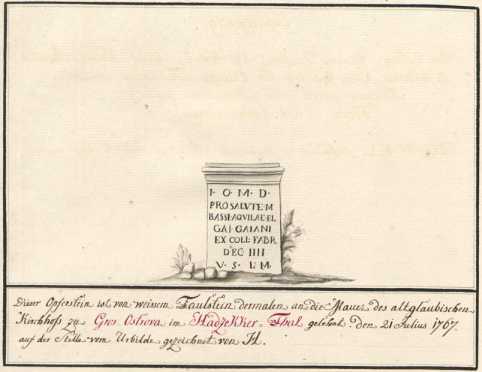 I · O · M · D ·
PRO SALUTE M
BASSI AQUILAE EL
GAI GAIANI
EX COLL: FABR
DEC IIII
V · S · L · M
Dieser Opferstein ist von weisem Faulstein dermalen an die Mauer des altglaubischen
Kirchhofs zu Gros Ostrova im Hadzekker=Thal gelehnt. den 21 Julius 1767.
auf der Stelle vom Urbilde gezeichnet von H.